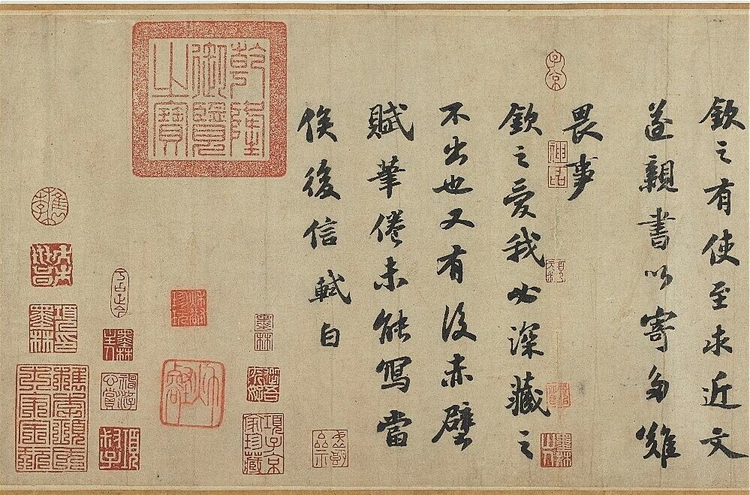 欽之有使至求近文
遂親書以寄多難
畏事
欽之愛我必深藏之
不出也又有後赤壁
賦筆倦未能寫當
俟後信軾白
乾隆御覽之寶
子京
神品
墨林
項子京家珍藏